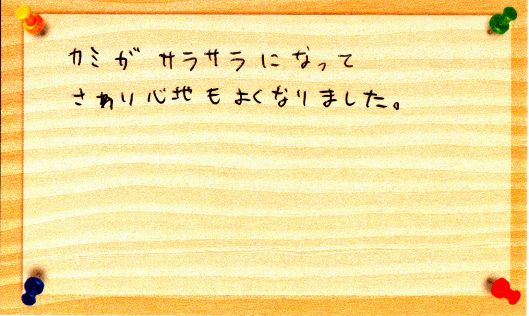 カミがサラサラになって
さわり心地もよくなりました。